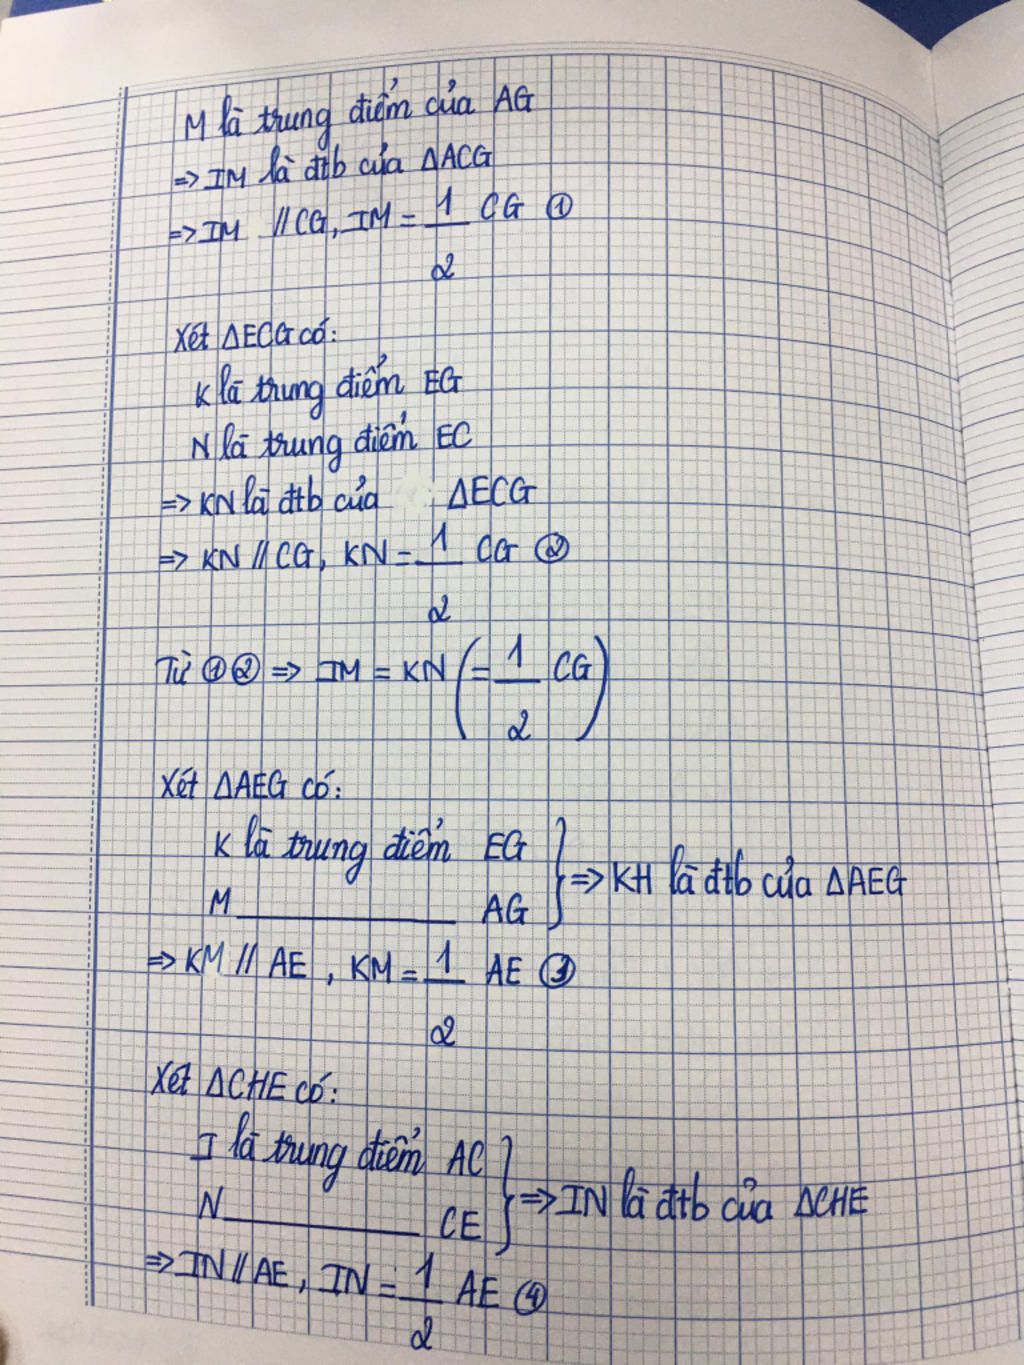 M là trung điểm của AG
=> IM là đtb của ΔACG
=> IM // CG, IM = 1/2 CG ①
Xét ΔECG có:
K là trung điểm EG
N là trung điểm EC
=> KN là đtb của ΔECG
=> KN // CG, KN = 1/2 CG ②
Từ ①② => IM = KN (= 1/2 CG)
Xét ΔAEG có:
K là trung điểm EG
M ——— AG } => KH là đtb của ΔAEG
=> KM // AE, KM = 1/2 AE ③
Xét ΔCHE có:
I là trung điểm AC
N ——— CE } => IN là đtb của ΔCHE
=> IN // AE, IN = 1/2 AE ④